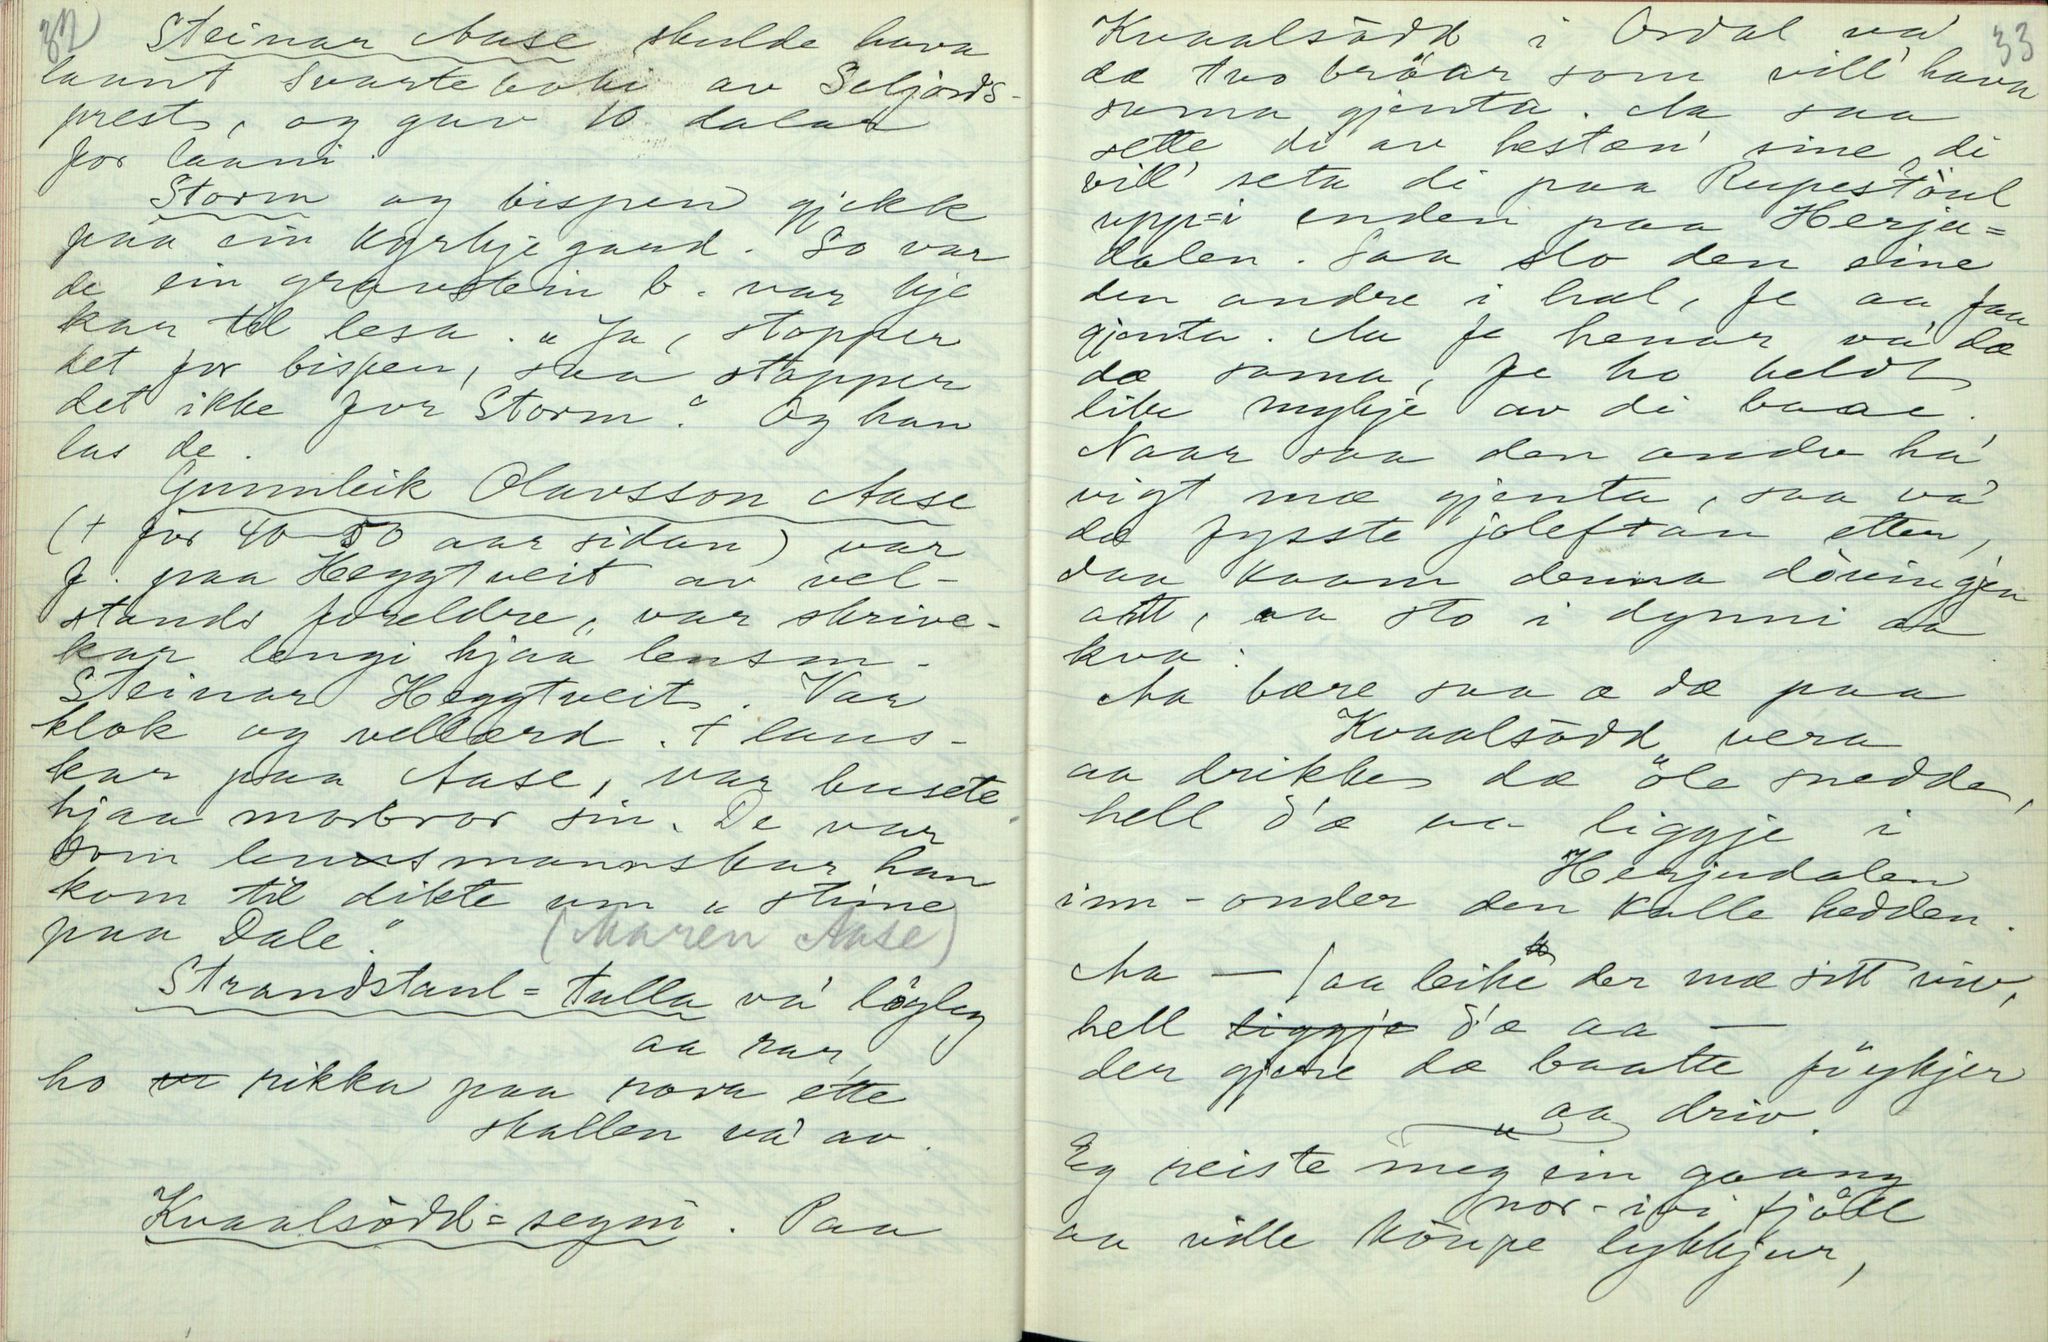 32
Steinar Aase skulde hava
laant Svarteboki av Seljords-
prest, og gav 10 dalar
for laani.
Storm og bispen gjekk
paa ein kyrkjegard. So var
de ein gravstein b. var kje
kar til lesa. "Ja, stopper
det for bispen, saa stopper
det ikke for Storm". Og han
las de.
Gunnleik Olavsson Aase
(† for 40-50 aar sidan) var
f. paa Heggtveit av vel-
stands foreldre, var skrive-
kar lengi hjaa lensm.
Steinar Heggtveit. Var
klok og vellærd. † laus-
kar paa Aase, var busete
hjaa morbror sin. De var
som lensmannskar han
kom til dikte um "Stine
paa Dale".
(Maren Aase)
Strandstaul=tulla va' lögleg
aa rar,
ho rikka paa rova ette
skallen va' av.
Kvaalsödd=segni. Paa
33
Kvaalsödd i Ordal va'
dæ tvo bröar som vill' hava
sama gjenta. Aa saa
sette di av hestan' sine, di
vill' seta di paa Rupestöul
upp-i enden paa Herju=
dalen. Saa slo den eine
den andre i hæl, fe aa faa
gjenta. Aa fe henar va' dæ
dæ sama, fe ho heldt
like mykje av di baae.
Naar saa den andre ha'
vigt mæ gjenta, saa va'
dæ fysste joleftan etter,
daa kaam denna döuingjen
att, aa sto i dynni aa
kva:
Aa bære saa æ dæ paa
Kvaalsödd vera
aa drikke dæ öle snedde,
hell d'æ aa liggje i
Herjudalen
inn-onder den kalle hedden.
Aa — faa leike der mæ sitt viv,
hell liggje d'æ aa —
der gjere dæ baatte föykjer
aa driv.
Eg reiste meg ein gaang
nor-ivi fjöll
aa ville köupe lykkjur,